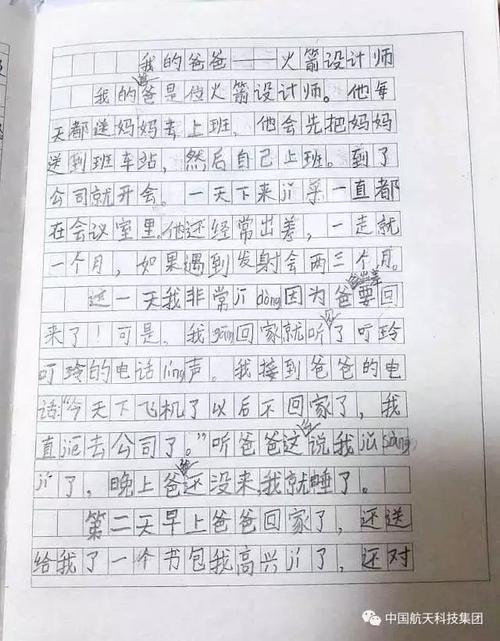 我的爸爸——火箭设计师
我的爸爸是位火箭设计师。他每
天都送妈妈去上班，他会先把妈妈
送到班车站，然后自己上班。到了
公司就开会。一天下来jī乎一直都
在会议室里。他还经常出差，一走就
一个月，如果遇到发射会两三个月。
这一天我非常jī dòng因为爸爸出差要回
来了！可是，我gāng回家就听到了叮玲
叮玲的电话líng声。我接到爸爸的电
话：“今天下飞机了以后不回家了，我
直jiē去公司了。”听爸爸这么说我jǔ sàng
jí了，晚上爸爸还没来我就睡了。
第二天早上爸爸回家了，还送
给我了一个书包我高兴jí了，还对
中国航天科技集团